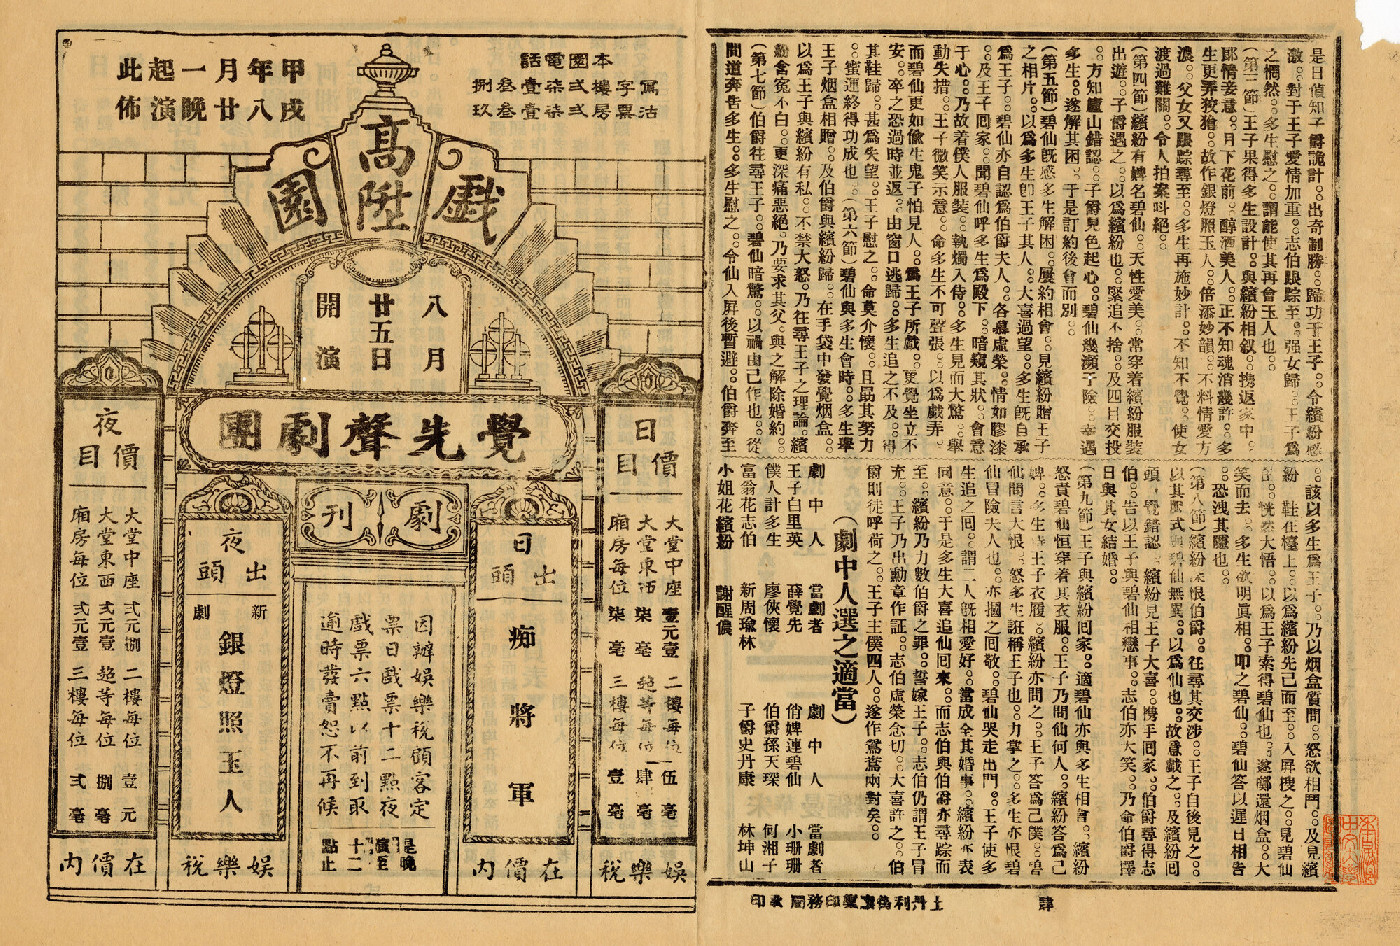 是日偵知子爵詭計。出奇制勝。歸功于王子。令繽紛感
激。對于王子愛情加重。志伯跟踪至。强女歸。王子爲
之惘然。多生慰之。謂能使其再會玉人也。
(第三節)王子果得多生設計。與繽紛相叙。携返家中。
郎情妾意。月下花前。醇酒美人。正不知魂消幾許。多
生更弄狡獪。故作銀燈照玉人。倍添妙韻。不料情愛方
濃。父女又跟踪尋至。多生再施妙計。不知不覺。使女
渡過難關。令人拍案呌絕。
(第四節)繽紛有婢名碧仙。天性愛美。常穿着繽紛服裝
出遊。子爵遇之。以爲繽紛也。緊追不捨。及四目交投
。方知廬山錯認。子爵見色起心。碧仙幾瀕于險。幸遇
多生。遂解其困。于是訂約後會而別。
(第五節)碧仙旣感多生解困。屢約相會。見繽紛贈王子
之相片。以爲多生卽王子其人。大喜過望。多生旣自承
爲王子。碧仙亦自認爲伯爵夫人。各慕虛榮。情如膠漆
。及王子囘家。聞碧仙呼多生爲殿下。暗窺其狀。會意
于心。乃故着僕人服裝。執燭入侍。多生見而大驚。舉
動失措。王子微笑示意。命多生不可聲張。以爲戲弄。
而碧仙更如偷生鬼子怕見人。爲王子所戲。更覺坐立不
安。卒之恐過時並返。由窗口逃歸。多生追之不及。得
其鞋歸。甚爲失望。王子慰之。命莫介懷。且助其努力
。蜜運終得功成也。(第六節)碧仙與多生會時。多生舉
王子烟盒相贈。及伯爵與繽紛歸。在手袋中發覺烟盒。
以爲王子與繽紛有私。不禁大怒。乃往尋王子之理論。繽
紛含寃不白。更深痛惡絕。乃要求其父。與之解除婚約。
(第七節)伯爵往尋王子。碧仙暗驚。以禍由己作也。從
間道奔告多生。多生慰之。令仙入屏後暫避。伯爵奔至
。該以多生爲王子。乃以烟盒質問。怒欲相鬥。及見繽
紛鞋在檯上。以爲繽紛先已而至。入屏搜之。見碧仙
。恍然大悟。以爲王子索得碧仙也。遂擲還烟盒。大
笑而去。多生欲明眞相。叩之碧仙。碧仙答以遲日相吿
。恐洩其隱也。
(第八節)繽紛深恨伯爵。往尋其交涉。王子自後見之。
以其服式與碧仙無異。以爲仙也。故意戲之。及繽紛囘
頭。覺錯認。繽紛見王子大喜。携手囘家。伯爵尋得志
伯。吿以王子與碧仙相戀事。志伯亦大笑。乃命伯爵擇
日與其女結婚。
(第九節)王子與繽紛囘家。適碧仙亦與多生相會。繽紛
怒責碧仙恒穿着其衣服。王子乃問仙何人。繽紛答爲己
婢。多生着王子衣履。繽紛亦問之。王子答爲己僕。
仙聞言大恨。怒多生誑稱王子也。力掌之。多生亦恨碧
仙冒險夫人也。亦摑之囘敬。碧仙哭走出門。王子使多
生追之囘。謂二人旣相愛好。當成全其婚事。繽紛亦表
同意。于是多生大喜追仙囘來。而志伯與伯爵亦尋踪而
至。繽紛乃力數伯爵之罪。誓嫁王子。志伯仍謂王子冒
充。王子乃出勳章作証。志伯虛榮念切。大喜許之。伯
爵則徒呼荷荷。王子主僕四人。遂作鴛鴦兩對矣。
(劇中人選之適當)
劇中人　當劇者　劇中人　當劇者
王子白里英　薛覺先　俏婢連碧仙　小珊珊
僕人計多生　廖俠懷　伯爵孫天琛　何湘子
富翁花志伯　新周瑜林　子爵史丹康　林坤山
小姐花繽紛　謝醒儂
肆
上丹利街文聖印務局承印
甲戌年八月廿一晚起演此佈
本園電話
寫字樓弍柒壹叁捌
沽票房弍柒壹叁玖
高陞戲園
八月廿五日開演
覺先聲劇團
劇刊
日價目
大堂中座　壹元壹
大堂東西　柒毫
廂房每位　柒毫
二樓每位　伍毫
超等每位　肆毫
三樓每位　壹毫
娛樂稅在價內
日出頭
痴將軍
夜出頭
新劇
銀燈照玉人
因辦娛樂稅顧客定
票日戲票十二點夜
戲票六點以前到取
逾時發賣恕不再候
是晚演至十二點止
夜價目
大堂中座　弍元捌
大堂東西　弍元壹
廂房每位　弍元壹
二樓每位　壹元
超等每位　捌毫
三樓每位　弍毫
娛樂稅在價內